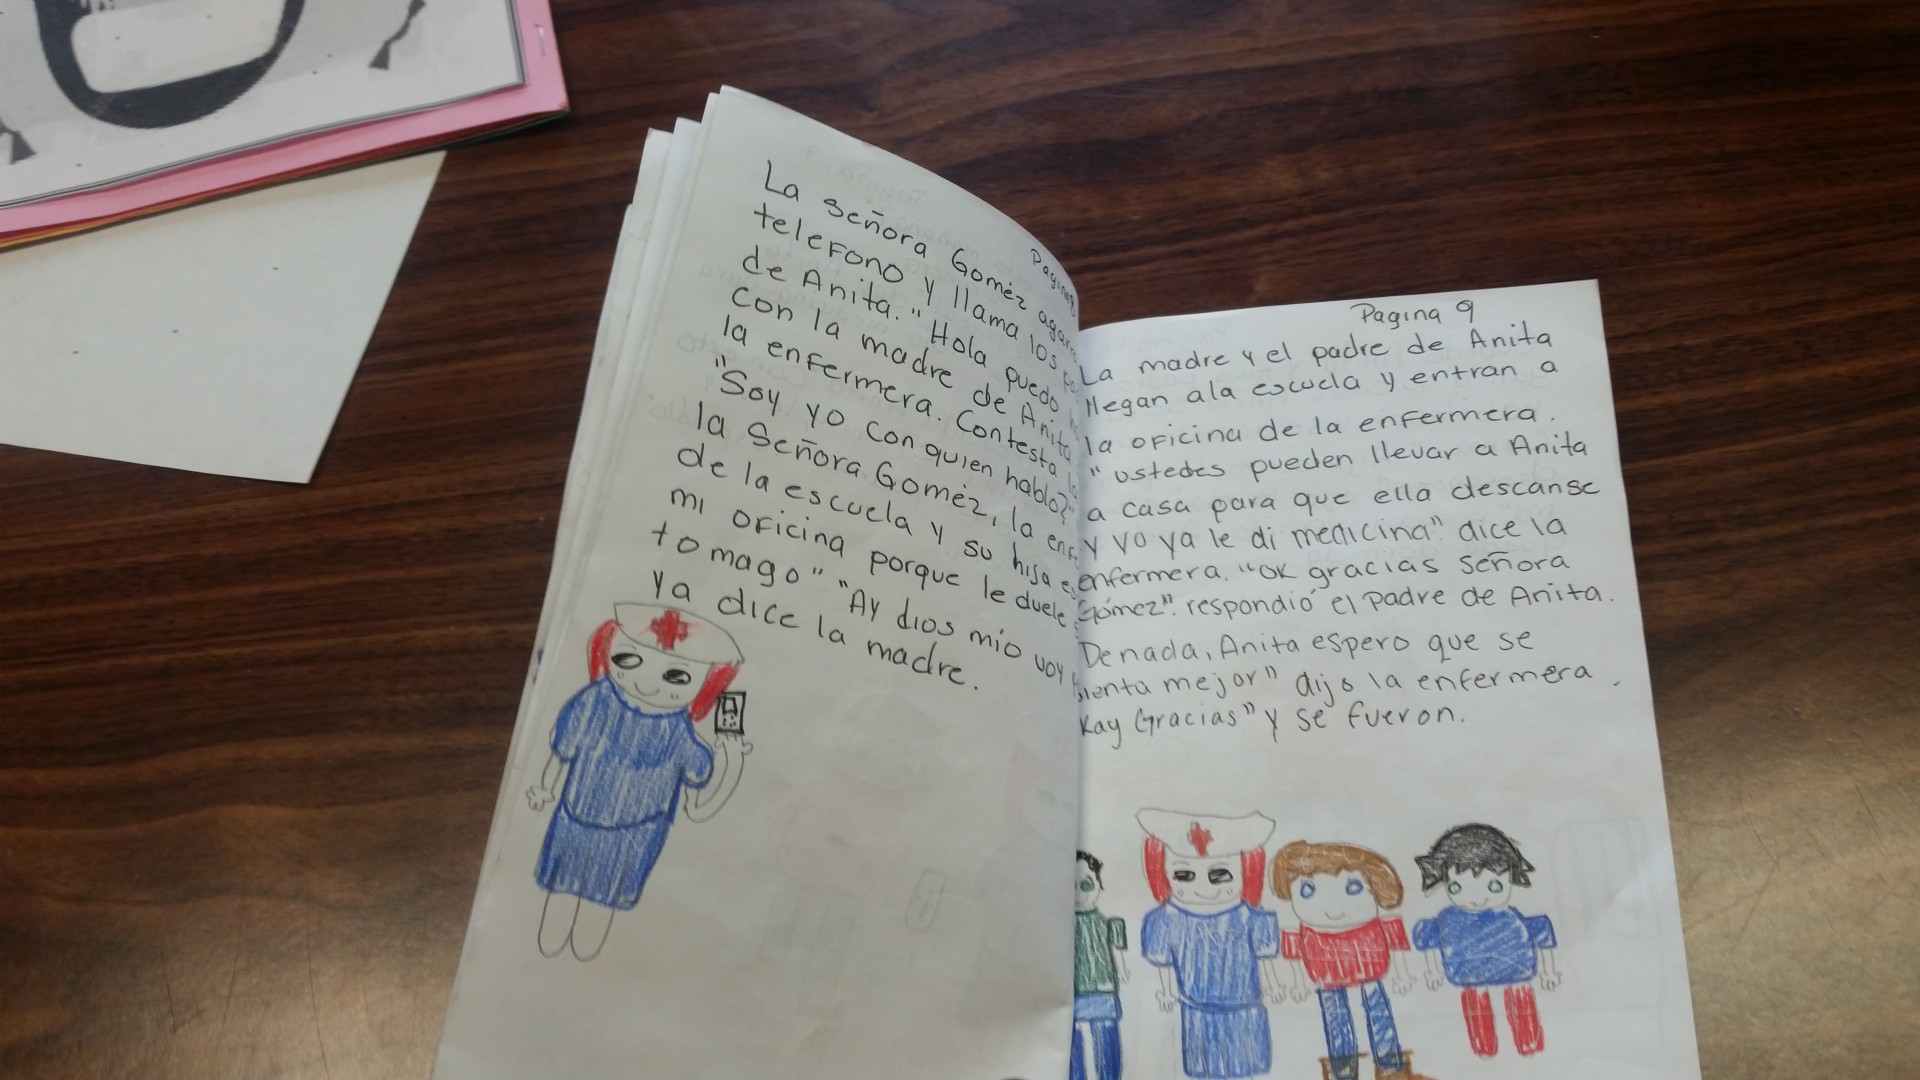 Pagina
La señora Goméz
telefono y llama los
de Anita." Hola puedo
con la madre de Anita
la enfermera. Contesta
"Soy yo con quien hablo?"
la Señora Goméz, la
de la escuela y su hija
mi oficina porque le duele
tomago" "Ay dios mio voy
ya dice la madre.
Pagina 9
La madre y el padre de Anita
llegan ala escuela y entran a
la oficina de la enfermera.
"ustedes pueden llevar a Anita
a casa para que ella descanse
y yo ya le di medicina" dice la
enfermera. "OK gracias señora
Gómez". respondió el padre de Anita.
Denada, Anita espero que se
sienta mejor" dijo la enfermera.
kay Gracias" y se fueron.